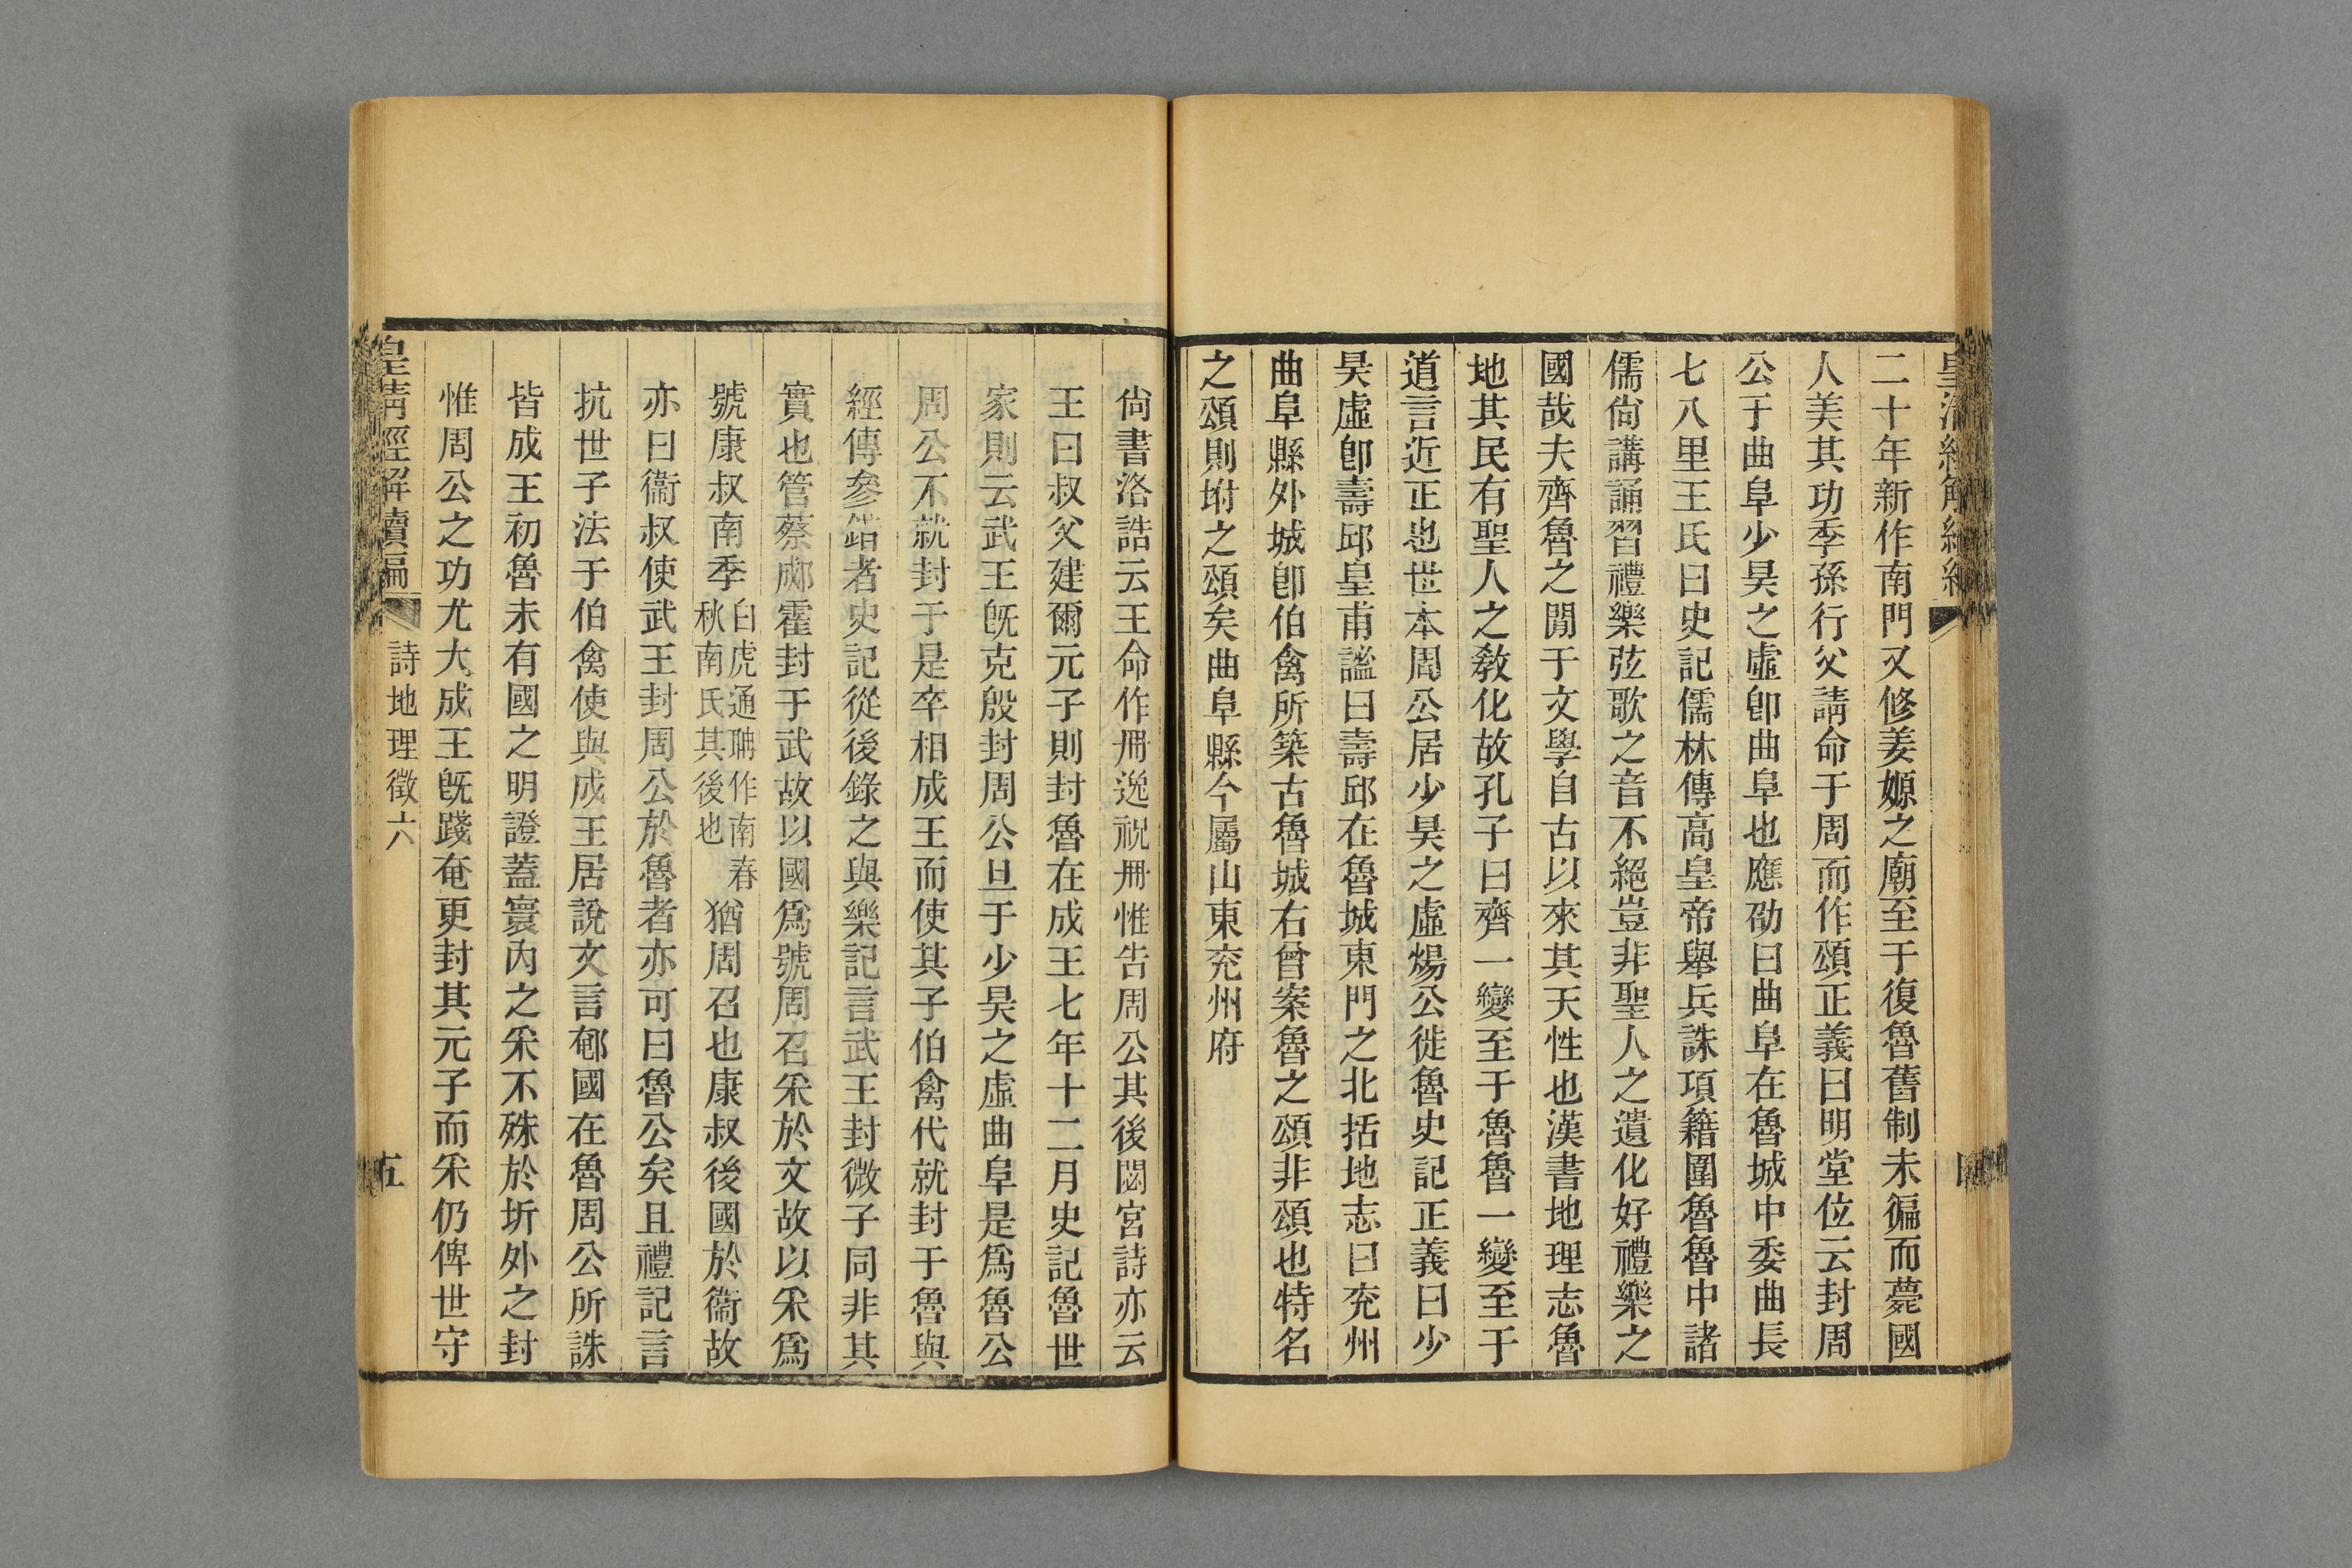 二十年新作南門又修姜嫄之廟至于復魯舊制未徧而薨國
人美其功季孫行父請命于周而作頌正義曰明堂位云封周
公于曲阜少昊之虛卽曲阜也應劭曰曲阜在魯城中委曲長
七八里王氏曰史記儒林傳高皇帝舉兵誅項籍圍魯魯中諸
儒尙講誦習禮樂弦歌之音不絕豈非聖人之遺化好禮樂之
國哉夫齊魯之閒于文學自古以來其天性也漢書地理志魯
地其民有聖人之敎化故孔子曰齊一變至于魯魯一變至于
道言近正也世本周公居少昊之虛煬公徙魯史記正義曰少
昊虛卽壽邱皇甫謐曰壽邱在魯城東門之北括地志曰兗州
曲阜縣外城卽伯禽所築古魯城右曾案魯之頌非頌也特名
之頌則坿之頌矣曲阜縣今屬山東兗州府
尙書洛誥云王命作冊逸祝冊惟告周公其後閟宮詩亦云
王曰叔父建爾元子則封魯在成王七年十二月史記魯世
家則云武王旣克殷封周公旦于少昊之虛曲阜是爲魯公
周公不就封于是卒相成王而使其子伯禽代就封于魯與
經傳參錯者史記從後錄之與樂記言武王封微子同非其
實也管蔡郕霍封于武故以國爲號周召采於文故以采爲
號康叔南季白虎通聃作南春秋南氏其後也猶周召也康叔後國於衞故
亦曰衞叔使武王封周公於魯者亦可曰魯公矣且禮記言
抗世子法于伯禽使與成王居說文言郁國在魯周公所誅
皆成王初魯未有國之明證蓋寰內之采不殊於圻外之封
惟周公之功尤大成王旣踐奄更封其元子而采仍俾世守
皇淸經解續編
詩地理徵六
五